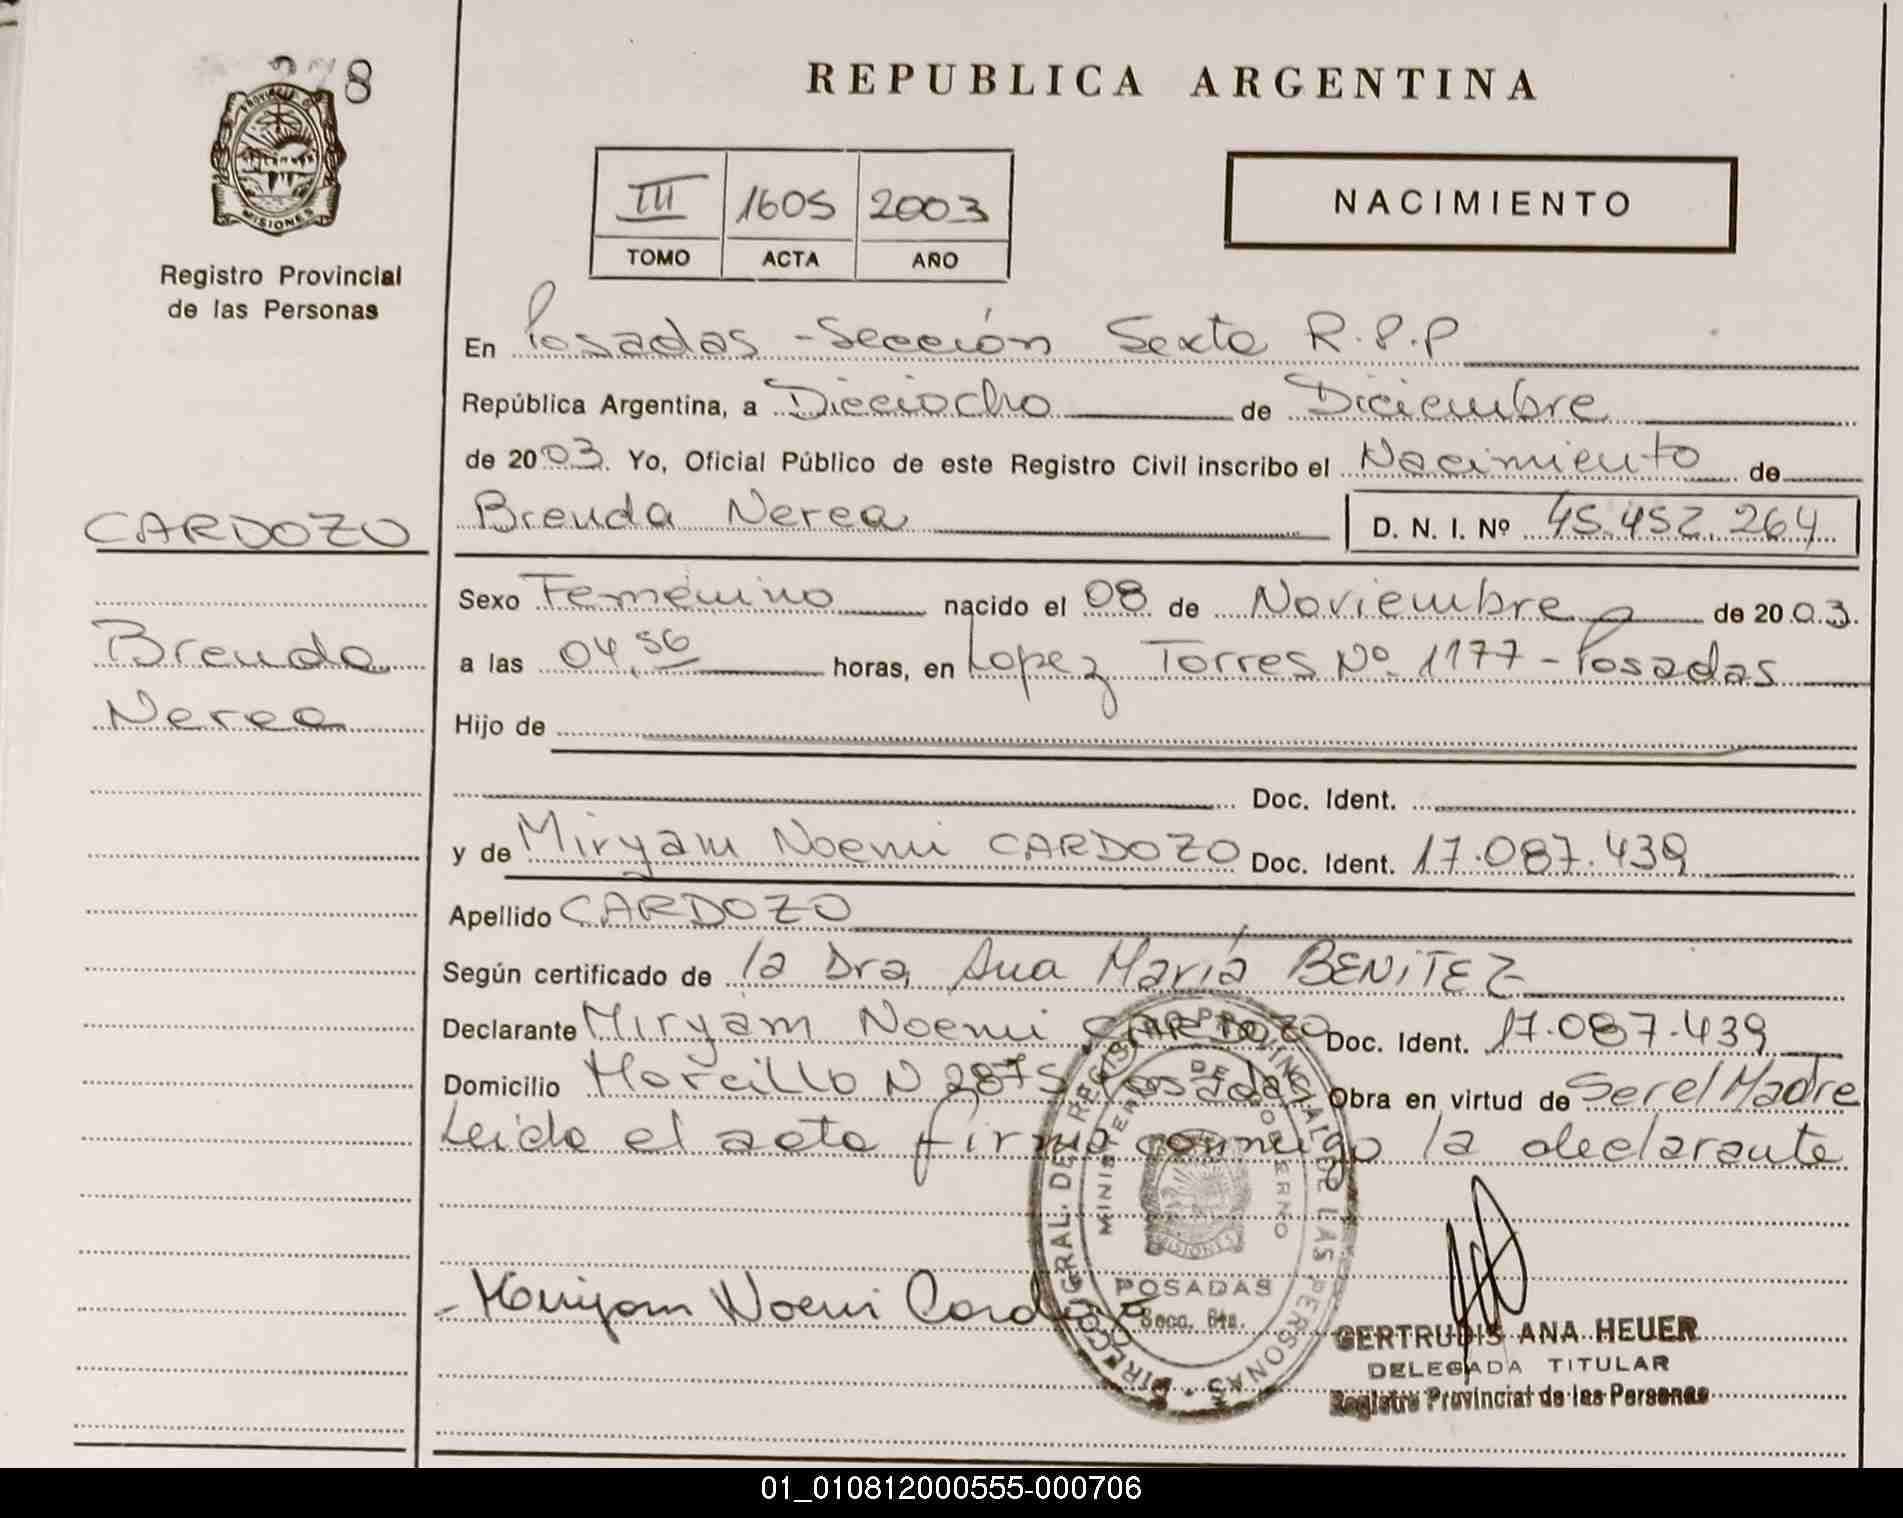 8
PROVINCIA DE
MISIONES
Registro Provincial
de las Personas
REPUBLICA ARGENTINA
III 1605 2003
TOMO ACTA AÑO
NACIMIENTO
En Posadas - Sección Sexta R.P.P
República Argentina, a Dieciocho de Diciembre
de 2003. Yo, Oficial Público de este Registro Civil inscribo el Nacimiento de
Brenda Nerea D. N. I. Nº 45.452.264
CARDOZO
Brenda
Nerea
Sexo Femenino nacido el 08 de Noviembre de 2003.
a las 04,56 horas, en Lopez Torres Nº 1177 - Posadas
Hijo de
Doc. Ident.
y de Miryam Noemi CARDOZO Doc. Ident. 17.087.439
Apellido CARDOZO
Según certificado de la Dra, Ana María BENITEZ
Declarante Miryam Noemi CARDOZO Doc. Ident. 17.087.439
Domicilio Morcillo N 2875 Posadas Obra en virtud de Ser el Madre
Leida el acta firma conmigo la declarante
Miryam Noemi Cardozo
DIRECC. GRAL. DEL REGISTRO PROVINCIAL DE LAS PERSONAS
MINISTERIO DE GOBIERNO
MISIONES
POSADAS
Secc. 6ta.
GERTRUDIS ANA HEUER
DELEGADA TITULAR
Registro Provincial de las Personas
01_010812000555-000706